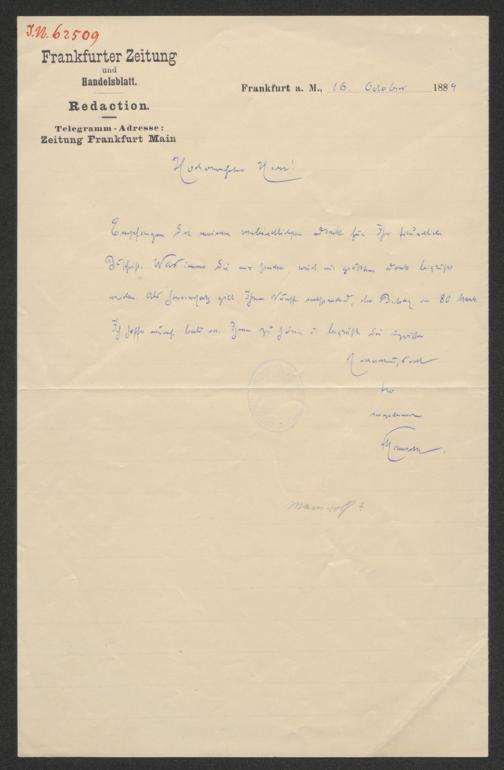 J.N. 62509
Frankfurter Zeitung
und
Handelsblatt.
Redaction.
Telegramm-Adresse:
Zeitung Frankfurt Main
Frankfurt a. M., 16. October 1889
Hochverehrter Herr!
Empfangen Sie meinen verbindlichsten Dank für Ihre freundliche
Zuschrift. Was immer Sie mir senden, wird mit größtem Dank begrüßt
werden. Als Honorarsatz gilt Ihrem Wunsch entsprechend, der Betrag von 80 Mark
Ich hoffe bald von Ihnen zu hören u. begrüße Sie
Hochachtungsvoll
Ihr
ergebener
Mamroth